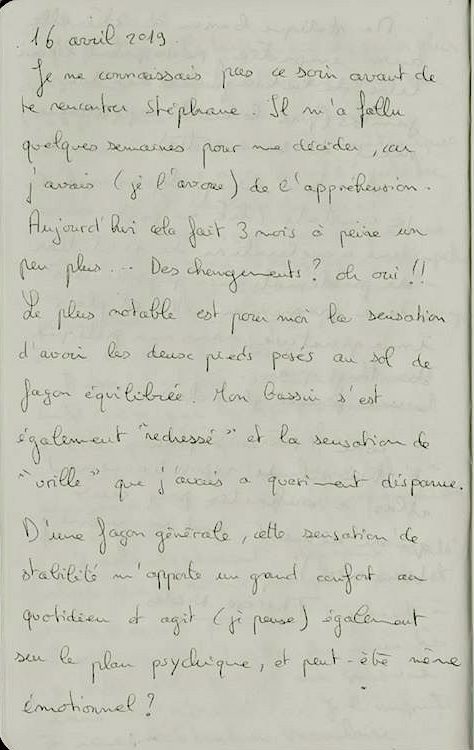 16 avril 2019.
Je ne connaissais pas ce soin avant de
te rencontrer Stéphane. Il m'a fallu
quelques semaines pour me décider, car
j'avais (je l'avoue) de l'appréhension.
Aujourd'hui cela fait 3 mois à peine un
peu plus... Des changements? oh oui!!
Le plus notable est pour moi la sensation
d'avoir les deux pieds posés au sol de
façon équilibrée! Mon bassin s'est
également "redressé" et la sensation de
"vrille" que j'avais a quasiment disparue.
D'une façon générale, cette sensation de
stabilité m'apporte un grand confort au
quotidien et agit (je pense) également
sur le plan psychique, et peut-être même
émotionnel?